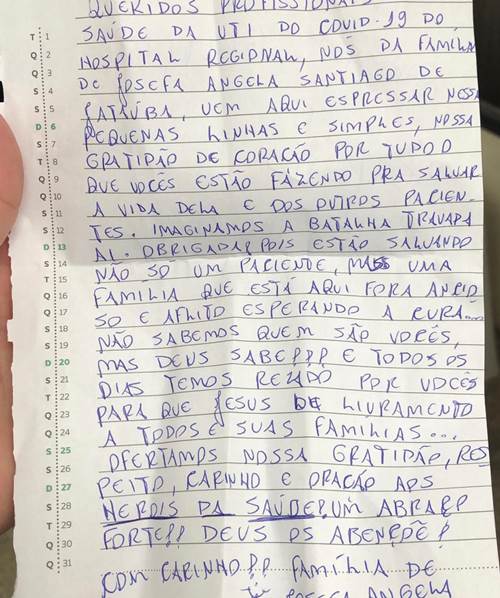 QUERIDOS PROFISSIONAIS
SAÚDE DA UTI DO COVID-19 DO
HOSPITAL REGIONAL, NÓS DA FAMÍLIA
DE JOSEFA ANGELA SANTIAGO DE
JATAÚBA, VEM AQUI ESPRESSAR NESSA
PEQUENAS LINHAS E SIMPLES, NOSSA
GRATIDÃO DE CORAÇÃO POR TUDO O
QUE VOCÊS ESTÃO FAZENDO PRA SALVAR
A VIDA DELA E DOS OUTROS PACIEN-
TES. IMAGINAMOS A BATALHA TRAVADA
AI. OBRIGADA! POIS ESTÃO SALVANDO
NÃO SÓ UM PACIENTE, MAS UMA
FAMÍLIA QUE ESTÁ AQUI FORA ANCIO
SO E AFLITO ESPERANDO A CURA...
NÃO SABEMOS QUEM SÃO VOCÊS,
MAS DEUS SABE!!! E TODOS OS
DIAS TEMOS REZADO POR VOCÊS
PARA QUE JESUS DE LIVRAMENTO
A TODOS E SUAS FAMILIAS...
OFERTAMOS NOSSA GRATIDÃO, RES
PEITO, CARINHO E ORAÇÃO AOS
HEROIS DA SAÚDE! UM ABRAÇO
FORTE!! DEUS OS ABENÇÕE!
COM CARINHO!! FAMÍLIA DE
JOSEFA ANGELA
T 1
Q 2
Q 3
S 4
S 5
D 6
S 7
T 8
Q 9
Q 10
S 11
S 12
D 13
S 14
T 15
Q 16
Q 17
S 18
S 19
D 20
S 21
T 22
Q 23
Q 24
S 25
S 26
D 27
S 28
T 29
Q 30
Q 31